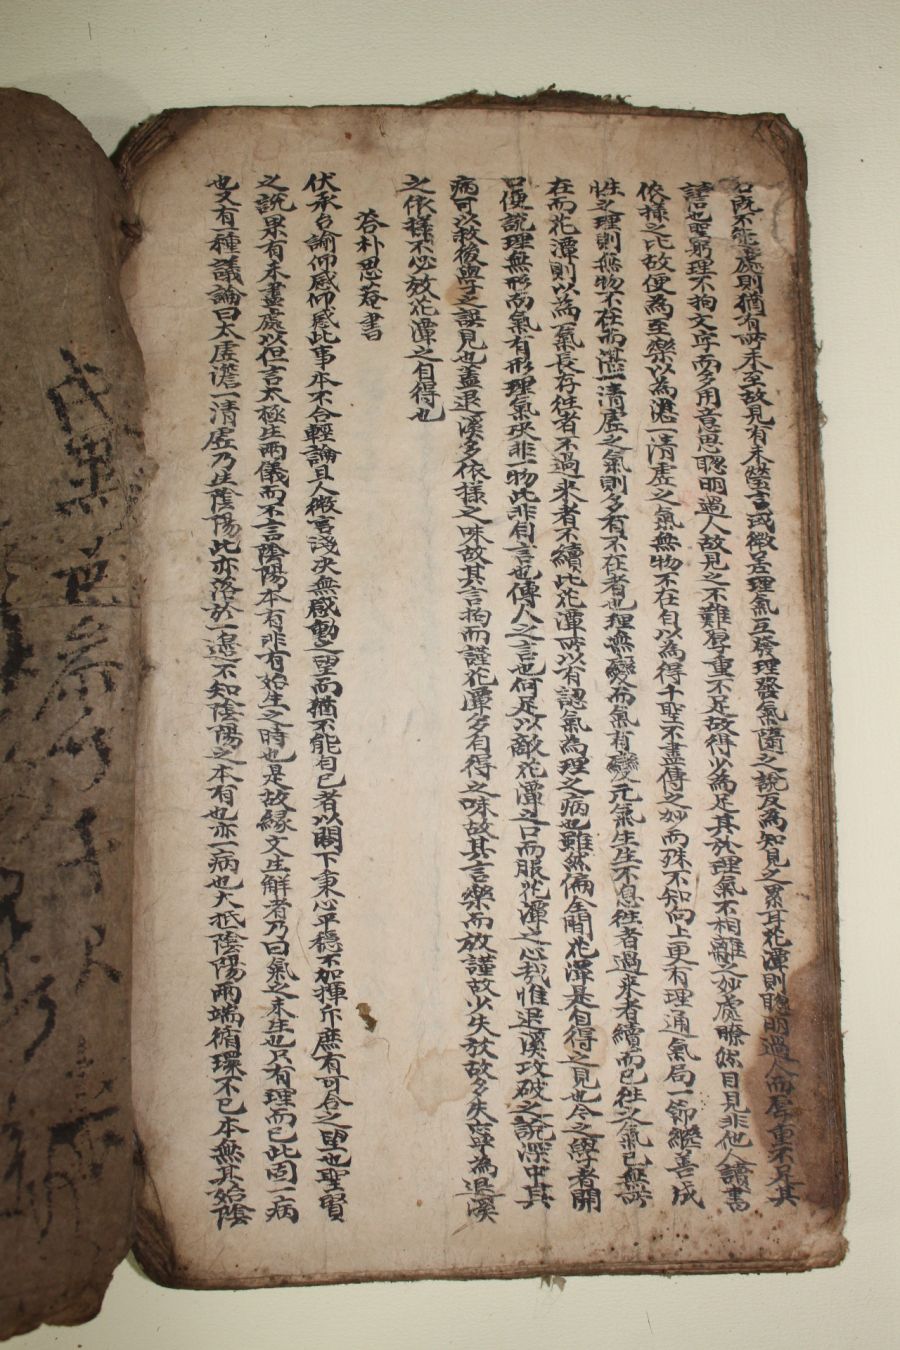 口旣不能處則猶有所未至故見有未瑩言或微差理氣互發理發氣隨之說反爲知見之累耳花潭則聰明過人而厚重不足其
讀書窮理不拘文字而多用意思聰明過人故見之不難厚重不足故得少爲足其於理氣不相離之妙處瞭然目見非他人讀書
依樣之比故便爲至樂以爲湛一淸虛之氣無物不在自以爲得千聖不盡傳之妙而殊不知向上更有理通氣局一節繼善成
性之理則無物不在而湛一淸虛之氣則多有不在者也理無變而氣有變元氣生生不息往者過來者續而已往之氣已無所
在而花潭則以爲一氣長存往者不過來者不續此花潭所以有認氣爲理之病也雖然偏全閒花潭是自得之見也今之學者開
口便說理無形而氣有形理氣決非一物此非自言也傳人之言也何足以敵花潭之口而服花潭之心哉惟退溪攻破之說深中其
病可以救後學之誤見也蓋退溪多依樣之味故其言拘而謹花潭多自得之味故其言樂而放謹故少失放故多失寧爲退溪
之依樣不必放花潭之自得也
答朴思菴書
伏承台諭仰感仰感此事本不合輕論且人微言淺決無感動之望而猶不能自已者以閤下秉心平穩不加揮斥庶有可合之望也聖賢
之說果有未盡處以但言太極生兩儀而不言陰陽本有非有始生之時也是故緣文生解者乃曰氣之未生也只有理而已此固一病
也又有一種議論曰太虛澹一淸虛乃生陰陽此亦落於一邊不知陰陽之本有也亦一病也大抵陰陽兩端循環不已本無其始陰